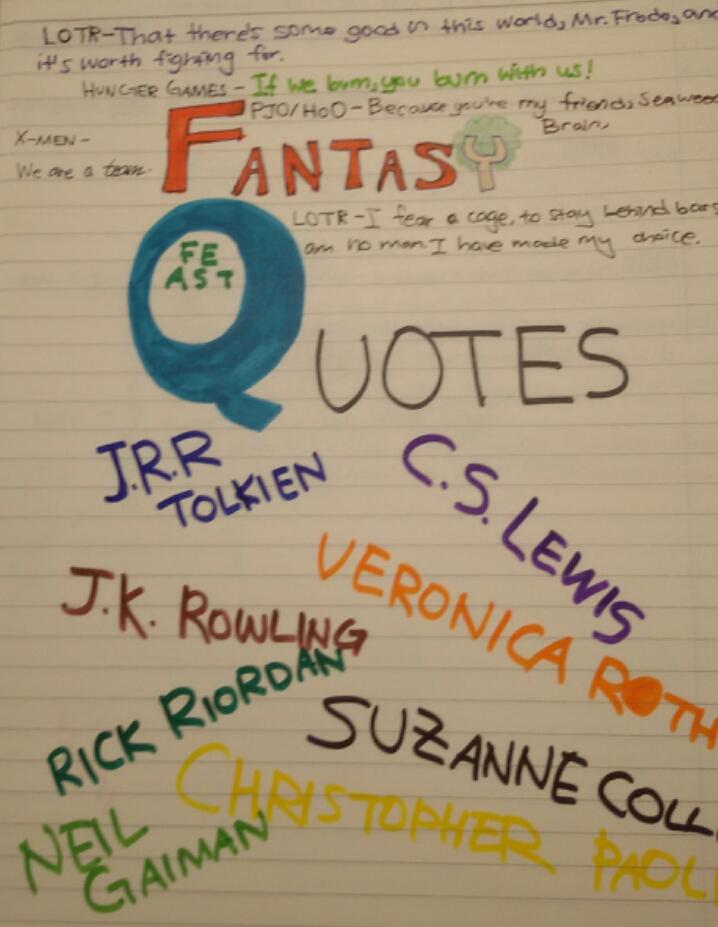 LOTR-That there's some good in this world, Mr. Frodo, and
it's worth fighting for.
HUNGER GAMES - If we burn, you burn with us!
PJO/HoO - Because you're my friend, Seaweed
Brain.
X-MEN -
We are a team.
FANTASY
LOTR-I fear a cage, to stay behind bars
am no man. I have made my choice.
FE
AST
QUOTES
J.R.R
TOLKIEN
C.S. LEWIS
VERONICA ROTH
J.K. ROWLING
RICK RIORDAN
SUZANNE COLL
CHRISTOPHER PAOL
NEIL
GAIMAN